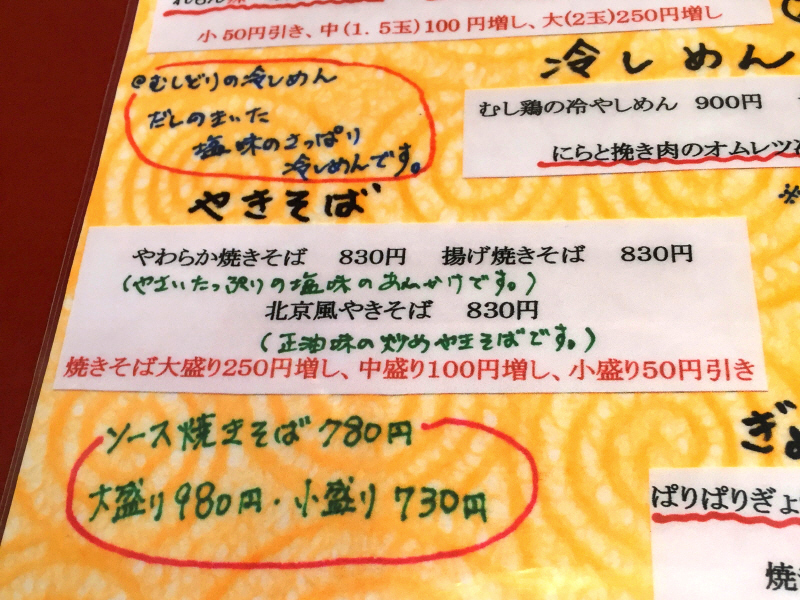 小50円引き、中(1.5玉)100円増し、大(2玉)250円増し
冷しめん
@むしどりの冷しめん
だしのきいた
塩味のさっぱり
冷しめんです。
むし鶏の冷やしめん 900円
にらと挽き肉のオムレツ
※
やきそば
やわらか焼きそば 830円 揚げ焼きそば 830円
(やさいたっぷりの塩味のあんかけです。)
北京風やきそば 830円
(正油味の炒めやきそばです。)
焼きそば大盛り250円増し、中盛り100円増し、小盛り50円引き
ソース焼きそば 780円
大盛り980円・小盛り 730円
ぎょ
ぱりぱりぎょ
焼